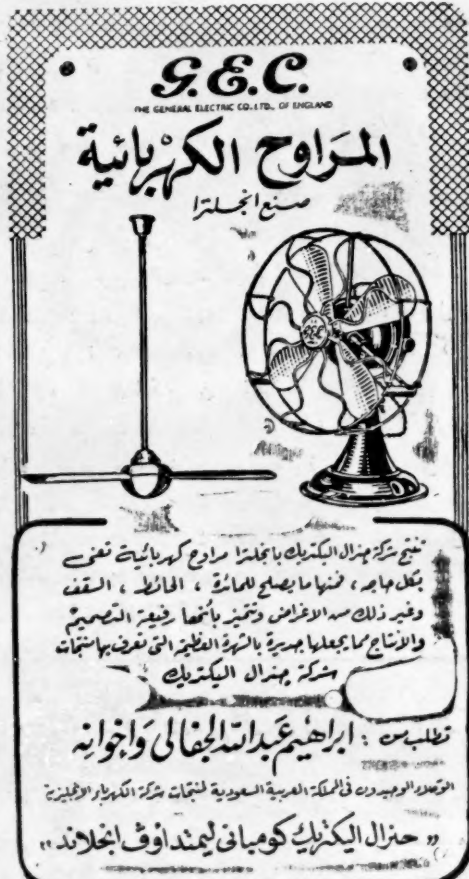 G.E.C.
THE GENERAL ELECTRIC CO. LTD., OF ENGLAND
المراوح الكهربائية
صنع انجلترا
G.E.C.
تنتج شركة جنرال اليكتريك بانجلترا مراوح كهربائية تفى
بكل حاجه، فمنها ما يصلح للمائدة، الحائط، السقف
وغير ذلك من الاغراض وتتميز بأنها رفيعة التصميم
والانتاج مما يجعلها جديرة بالشهرة العظيمة التى تعرف بها منتجات
شركة جنرال اليكتريك
تطلب من: ابراهيم عبد الله الجفالى واخوانه
الوكلاء الوحيدون فى المملكة العربية السعودية لمنتجات شركة الكهرباء الانجليزية
«جنرال اليكتريك كومبانى ليمتد اوف انجلاند»